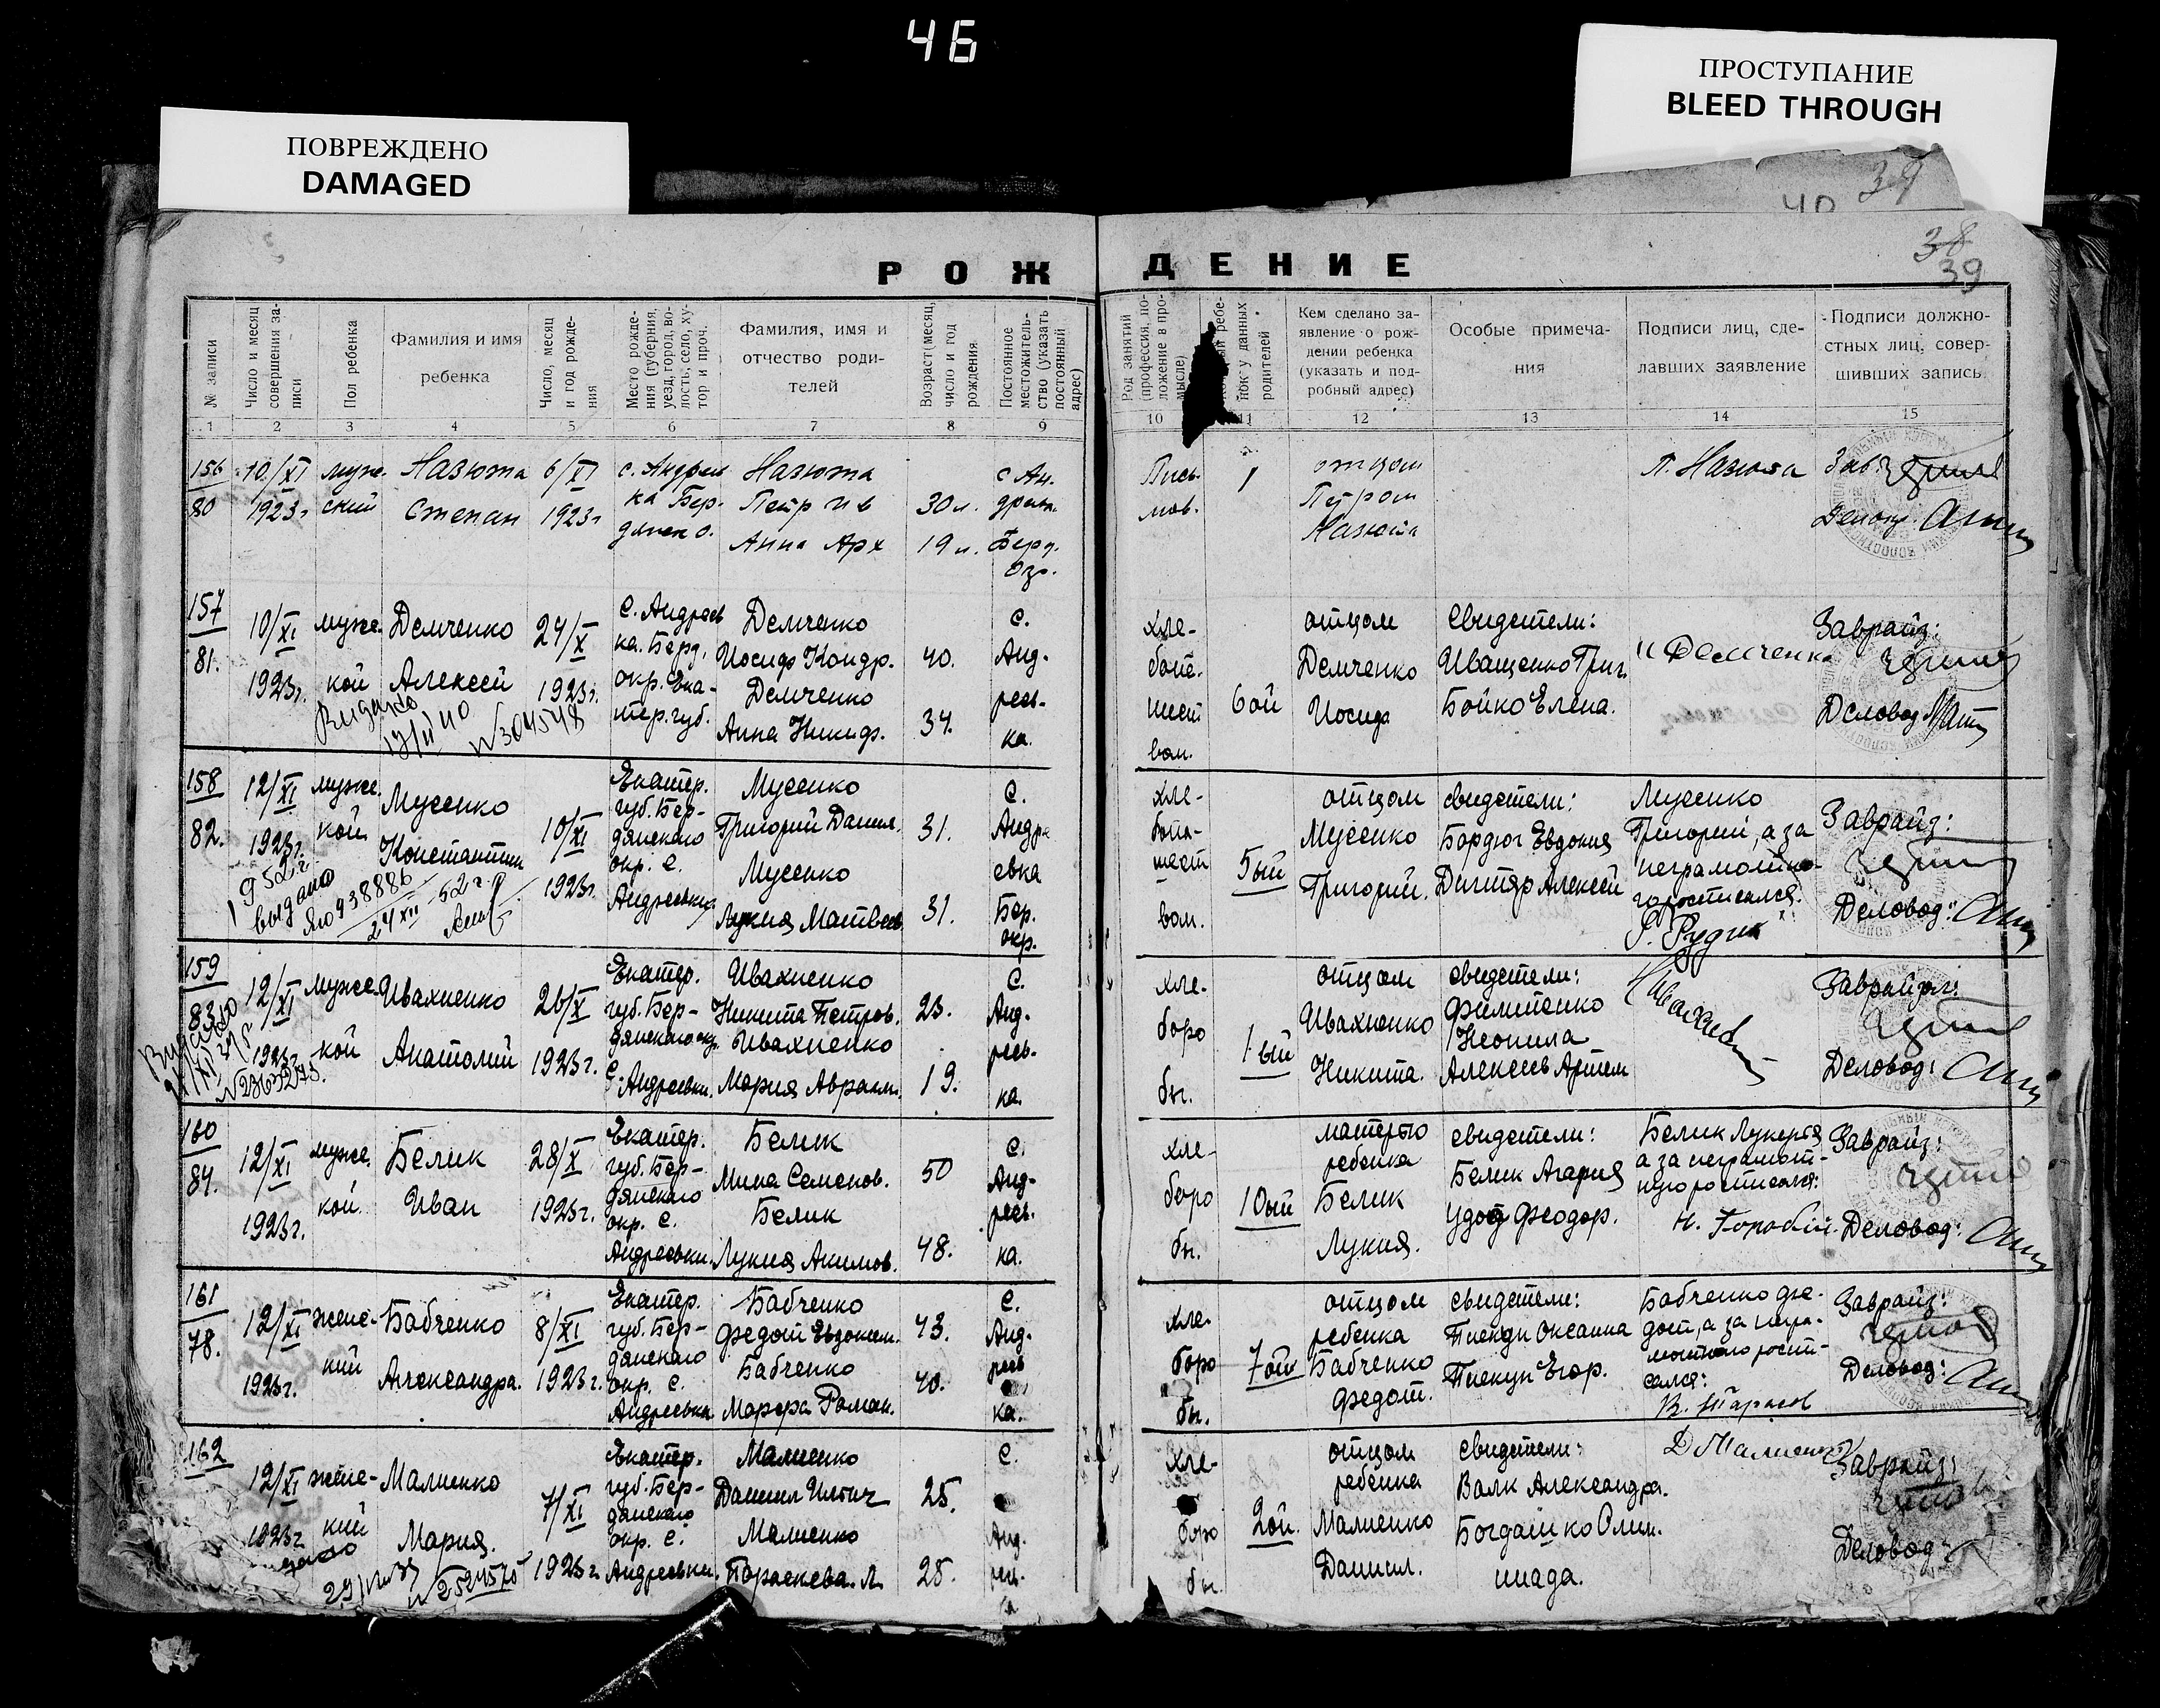 46
ПОВРЕЖДЕНО
DAMAGED
ПРОСТУПАНИЕ
BLEED THROUGH
39
40
38
39
РОЖДЕНИЕ
№ записи
Число и месяц совершения записи
Пол ребенка
Фамилия и имя
ребенка
Число, месяц и год рождения
Место рождения (губерния, уезд, город, волость, село, хутор и проч.
Фамилия, имя и
отчество роди-
телей
Возраст (месяц, число и год рождения
Постоянное местожительство (указать постоянный адрес)
Род занятий (профессия, положение в промысле)
у данных родителей
Кем сделано за-
явление о рож-
дении ребенка
(указать и под-
робный адрес)
Особые примеча-
ния
Подписи лиц, сде-
лавших заявление
Подписи должно-
стных лиц, совер-
шивших запись
1 2 3 4 5 6 7 8 9 10 11 12 13 14 15
156
80
10/XI
1923г
муже.
ский
Назюта
Степан
6/XI
1923г
с. Андреев
ка Бер.
Назюта
Петр И в
Анна Арх
30 л.
19 л.
с Ан.
Пись.
мов.
1
отцом
Петром
Назюта
П. Назюта
157
81.
10/XI
1923г.
муже.
кой
Демченко
Алексей
24/X
1923г.
С. Андреев
ка. Берд.
окр. Ека-
тер. губ.
Демченко
Иосиф Кондр.
Демченко
Анна Никиф.
40.
34.
с.
Анд-
реев-
ка.
хле-
бопа-
шест
вом.
6ой
отцом
Демченко
Иосиф
Свидетели:
Иващенко Григ.
Бойко Елена.
И Демченко
Заврайз:
Деловод
№304548
158
82.
12/XI
1923г.
муже.
кой
Мусенко
Константин
10/XI
1923г.
Екатер.
губ. Бер-
дянского
окр. с.
Андреевка
Мусенко
Григорий Данил.
Мусенко
Лукия Матвеев.
31.
31.
С.
Андре
евка
Бер.
окр.
хле-
бопа-
шест
вом.
5ый
отцом
Мусенко
Григорий.
свидетели:
Бордюг Евдокия
Дигтяр Алексей
Мусенко
Григорий, а за
неграмотно-
го росписался.
Заврайз:
Деловод:
1952г.
выдано
938886
24 XII 52 г.
159
83
12/XI
1923г.
муже.
кой
Ивахненко
Анатолий
26/X
1923г.
Екатер.
губ. Бер-
дянского окр.
с. Андреевки.
Ивахненко
Никита Петров.
Ивахненко
Мария Аврам.
23.
19.
С.
Анд-
реев-
ка.
хле-
боро
бы.
1ый
отцом
Ивахненко
Никита.
свидетели:
Филипенко
Неонила
Алексеев Артем
Деловод:
160
84.
12/XI
1923г.
муже.
кой
Белик
Иван
28/X
1923г.
Екатер.
губ. Бер-
дянского
окр. с.
Андреевки.
Белик
Мина Семенов.
Белик
Лукия Акимов.
50
48.
С.
Анд-
реев-
ка.
хле-
боро
бы.
10ый
матерью
ребенка
Белик
Лукия.
свидетели:
Белик Агария
Удод Феодор.
Белик Лукерья
а за неграмот-
ную росписался:
Заврайз:
Деловод:
161
78.
12/XI
1923г.
женс-
кий
Бабченко
Александра.
8/XI
1923г.
Екатер.
губ. Бер-
дянского
окр. с.
Андреевка
Бабченко
Федот Евдоким.
Бабченко
Марфа Роман.
43.
40.
С.
Анд-
реев
ка.
хле-
боро
бы.
7ой
отцом
ребенка
Бабченко
Федот.
свидетели:
Пиекун Егор.
Бабченко Фе-
дот, а за негра-
мотного роспи-
сался:
В. Тарасов
Заврайз:
Деловод:
162
12/XI
1923г
женс-
кий
Малиенко
Мария.
7/XI
1923г.
Екатер.
губ. Бер-
дянского
окр. с.
Андреевки.
Малиенко
Даниил Ильич
Малиенко
Параскева. Л.
25.
28.
С.
Анд-
хле-
боро
бы.
2ой.
отцом
ребенка
Малиенко
Даниил.
свидетели:
Валк Александра.
Богдашко Олим-
пиада.
Заврайз:
Деловод: